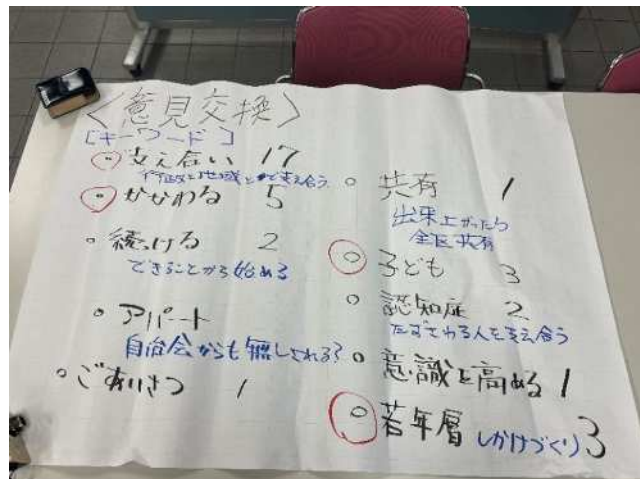 〈意見交換〉
[キーワード]
○ 支え合い 17
行政と地域とで支え合う
○ かかわる 5
○ 続ける 2
できることから始める
○ アパート
自治会からも無しされる?
○ ごあいさつ 1
○ 共有 1
出来上がったら
全区共有
○ 子ども 3
○ 認知症 2
たずさわる人を支え合う
○ 意識を高める 1
○ 若年層 しかけづくり 3